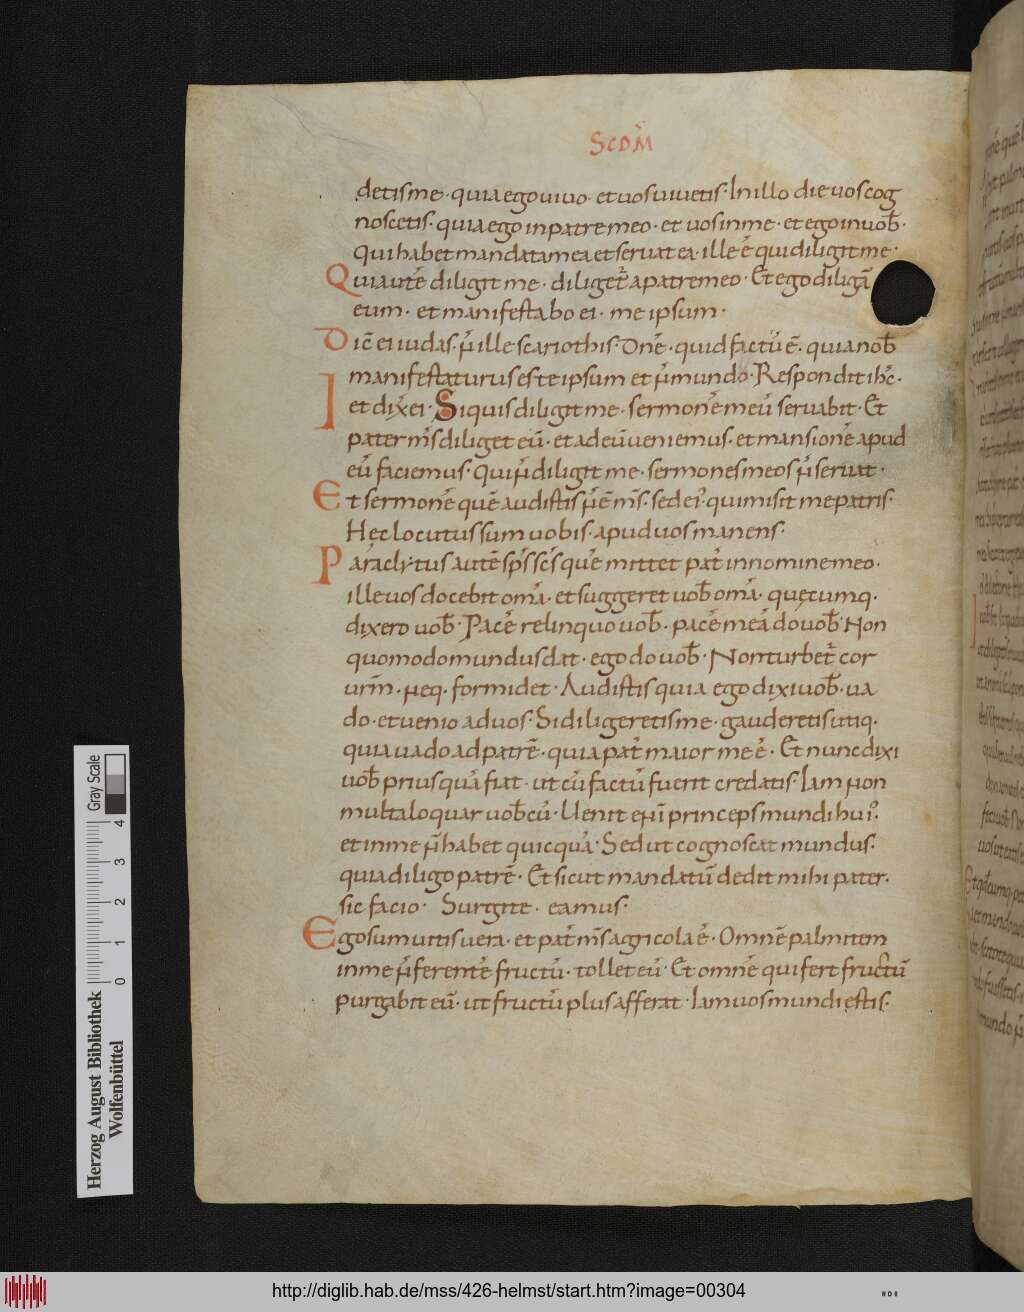 SCDM̄
detis me · quia ego uiuo · et uos uiuetis · In illo die uos cog
noscetis · quia ego in patre meo · et uos in me · et ego in uob̄ ·
Qui habet mandata mea et seruat ea · ille ē qui diligit me ·
Qui autē diligit me · diliget᷑ a patre meo · Et ego diligā
eum · et manifestabo ei · me ipsum ·
Dic̄ ei iudas · n̄ ille scariothis · Dn̄e · quid factū ē · quia nob̄
manifestaturus es te ipsum et n̄ mundo · Respondit ih̄c ·
et dix̄ ei · Si quis diligit me · sermonē meū seruabit · Et
pater m̄s diliget eū · et ad eū ueniemus · et mansionē apud
eū faciemus · Qui n̄ diligit me · sermones meos n̄ seruat ·
Et sermonē quē audistis n̄ ē m̄s · sed ei᷒ · qui misit me patris ·
Hęc locutus sum uobis · apud uos manens ·
Paraclytus autē sp̄s sc̄s quē mittet pat᷑ in nomine meo ·
ille uos docebit om̄a · et suggeret uob̄ om̄a · quęcumq ·
dixero uob̄ · Pacē relinquo uob̄ · pacē meā do uob̄ · Non
quomodo mundus dat · ego do uob̄ · Non turbet᷑ cor
urm̄ · neq · formidet · Audistis quia ego dixi uob̄ · ua
do · et uenio ad uos · Si diligeretis me · gauderetis utiq ·
quia uado ad patrē · quia pat᷑ maior me ē · Et nunc dixi
uob̄ priusquā fiat · ut cū factū fuerit credatis · Iam non
multa loquar uob̄cū · Uenit enī princeps mundi hui᷒ ·
et in me n̄ habet quicquā · Sed ut cognoscat mundus ·
quia diligo patrē · Et sicut mandatū dedit mihi pater ·
sic facio · Surgite · eamus ·
Ego sum uitis uera · et pat᷑ m̄s agricola ē · Omnē palmitem
in me n̄ ferentē fructū · tollet eū · Et omnē qui fert fructū
purgabit eū · ut fructū plus afferat · Iam uos mundi estis ·
Gray Scale
0 1 2 3 4
Herzog August Bibliothek
Wolfenbüttel
http://diglib.hab.de/mss/426-helmst/start.htm?image=00304